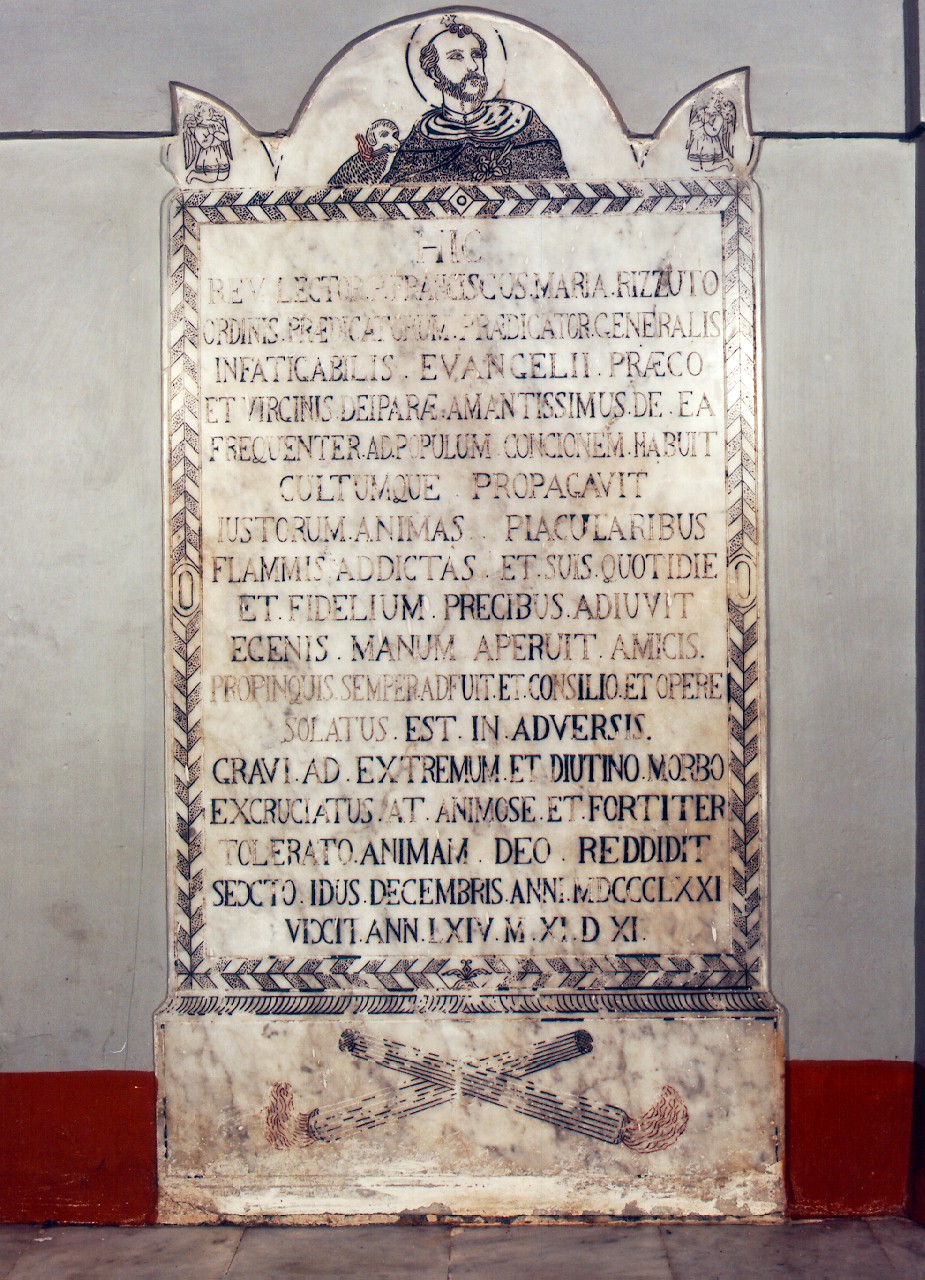 HIC
REV LECTOR.F.FRANCISCUS.MARIA.RIZZUTO
ORDINIS.PRÆDICATORUM.PRÆDICATOR.GENERALIS
INFATIGABILIS.EVANGELII.PRÆCO
ET VIRGINIS.DEIPARÆ.AMANTISSIMUS.DE.EA
FREQUENTER.AD.POPULUM CONCIONEM.HABUIT
CULTUMQUE.PROPAGAVIT
IUSTORUM.ANIMAS.PIACULARIBUS
FLAMMIS ADDICTAS.ET.SUIS.QUOTIDIE
ET.FIDELIUM.PRECIBUS.ADIUVIT
EGENIS.MANUM APERUIT.AMICIS.
PROPINQUIS.SEMPER.ADFUIT.ET.CONSILIO.ET OPERE
SOLATUS.EST.IN.ADVERSIS.
GRAVI.AD.EXTREMUM.ET DIUTINO.MORBO
EXCRUCIATUS.AT.ANIMOSE.ET.FORTITER
TOLERATO.ANIMAM.DEO.REDDIDIT
SEXTO.IDUS.DECEMBRIS.ANNI.MDCCCLXXI
VIXIT.ANN.LXIV.M.XI.D XI.